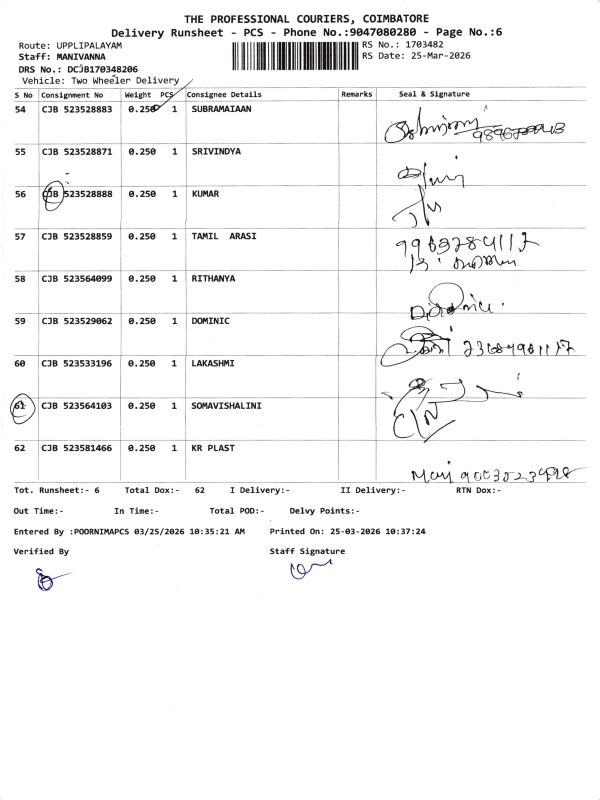 THE PROFESSIONAL COURIERS, COIMBATORE
Delivery Runsheet - PCS - Phone No.:9047080280 - Page No.:6
Route: UPPLIPALAYAM RS No.: 1703482
Staff: MANIVANNA RS Date: 25-Mar-2026
DRS No.: DCJB170348206
Vehicle: Two Wheeler Delivery
S No Consignment No Weight PCS Consignee Details Remarks Seal & Signature
54 CJB 523528883 0.250 1 SUBRAMAIAAN
55 CJB 523528871 0.250 1 SRIVINDYA
56 CJB 523528888 0.250 1 KUMAR
57 CJB 523528859 0.250 1 TAMIL ARASI
58 CJB 523564099 0.250 1 RITHANYA
59 CJB 523529062 0.250 1 DOMINIC
60 CJB 523533196 0.250 1 LAKASHMI
61 CJB 523564103 0.250 1 SOMAVISHALINI
62 CJB 523581466 0.250 1 KR PLAST
Tot. Runsheet:- 6 Total Dox:- 62 I Delivery:- II Delivery:- RTN Dox:-
Out Time:- In Time:- Total POD:- Delvy Points:-
Entered By :POORNIMAPCS 03/25/2026 10:35:21 AM Printed On: 25-03-2026 10:37:24
Verified By Staff Signature